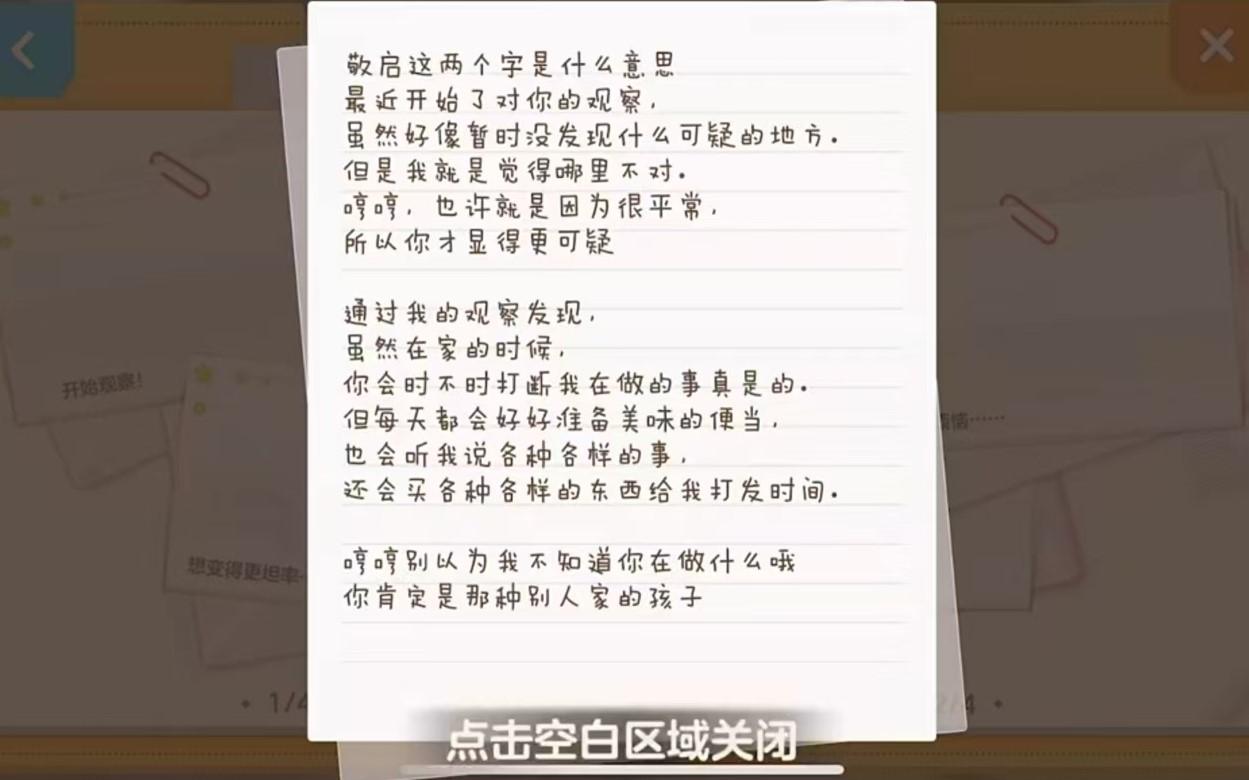 敬启这两个字是什么意思
最近开始了对你的观察，
虽然好像暂时没发现什么可疑的地方。
但是我就是觉得哪里不对。
哼哼，也许就是因为很平常，
所以你才显得更可疑
通过我的观察发现，
虽然在家的时候，
你会时不时打断我在做的事真是的。
但每天都会好好准备美味的便当，
也会听我说各种各样的事，
还会买各种各样的东西给我打发时间。
哼哼别以为我不知道你在做什么哦
你肯定是那种别人家的孩子
开始观察！
想变得更坦率
恼……
1/4
2/4
点击空白区域关闭